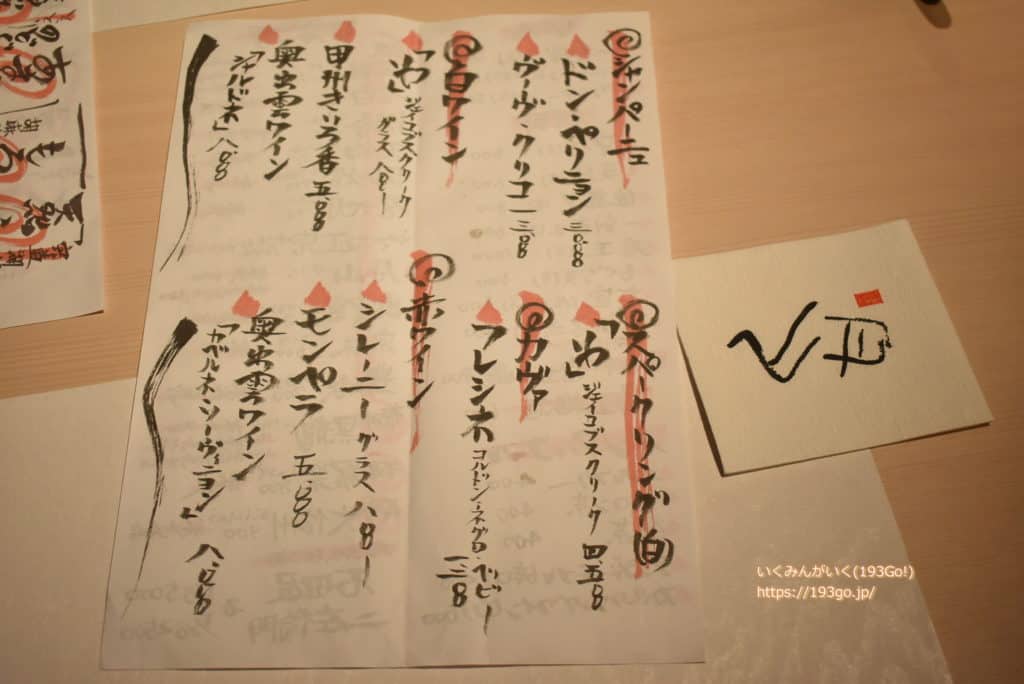 ◎シャンペーニュ
ドン・ペリニヨン 三〇、〇〇〇
ヴーヴ・クリコ 一三、〇〇〇
◎白ワイン
「わ」ジェイコブスクリーク
グラス 八〇〇ー
甲州きいろ香 五、〇〇〇
奥出雲ワイン
「シャルドネ」八、〇〇〇
◎スパークリング(白)
「わ」ジェイコブスクリーク 四、五〇〇
◎カヴァ
フレシネ コルドン・ネグロ・ベッビー 一三〇〇
◎赤ワイン
シレーニー グラス 八〇〇ー
モンペラ 五、〇〇〇
奥出雲ワイン
「カベルネ・ソーヴィニヨン」 八、〇〇〇
いくみんがいく(193Go!)
https://193go.jp/